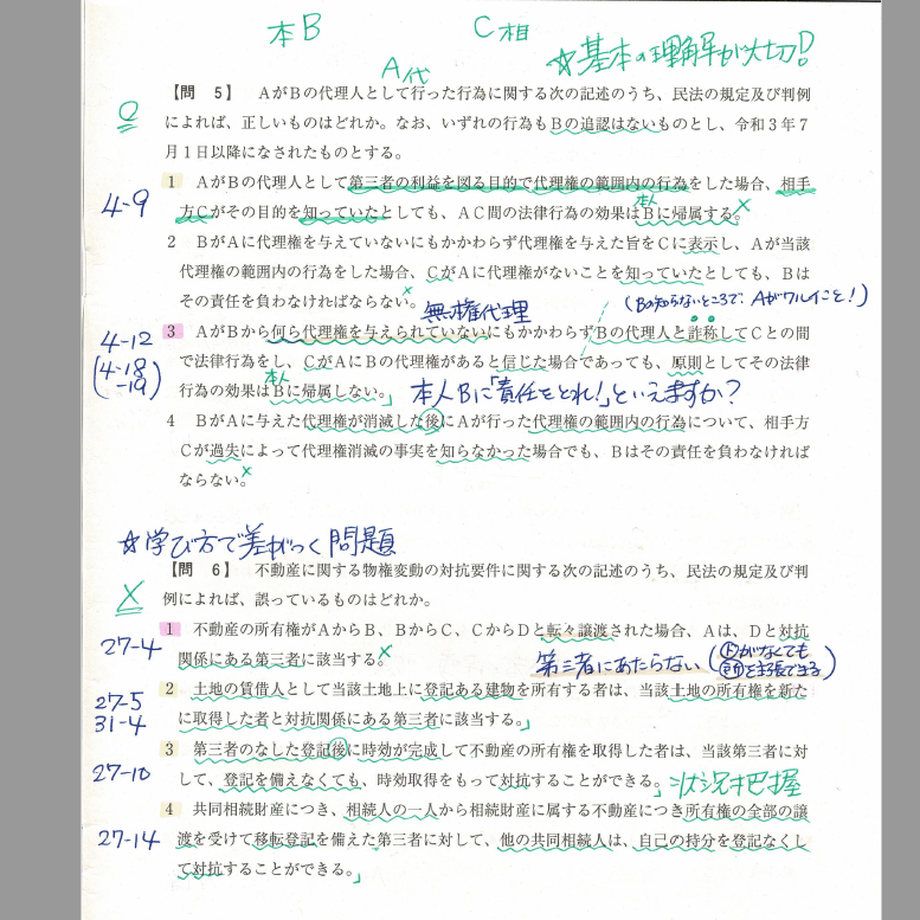 本B C相
A代 ☆基本の理解が大切!
【問 5】 AがBの代理人として行った行為に関する次の記述のうち、民法の規定及び判例
によれば、正しいものはどれか。なお、いずれの行為もBの追認はないものとし、令和3年7
月1日以降になされたものとする。
4-9
1 AがBの代理人として第三者の利益を図る目的で代理権の範囲内の行為をした場合、相手
方Cがその目的を知っていたとしても、AC間の法律行為の効果はBに帰属する。×
本人
2 BがAに代理権を与えていないにもかかわらず代理権を与えた旨をCに表示し、Aが当該
代理権の範囲内の行為をした場合、CがAに代理権がないことを知っていたとしても、Bは
その責任を負わなければならない。×
無権代理 (Bの知らないところで、Aがワルイこと!)
4-12
(4-18
-19)
3 AがBから何ら代理権を与えられていないにもかかわらずBの代理人と詐称してCとの間
で法律行為をし、CがAにBの代理権があると信じた場合であっても、原則としてその法律
行為の効果はBに帰属しない。」
本人
本人Bに「責任をとれ!」といえますか?
4 BがAに与えた代理権が消滅した後にAが行った代理権の範囲内の行為について、相手方
Cが過失によって代理権消滅の事実を知らなかった場合でも、Bはその責任を負わなければ
ならない。×
☆学び方で差がつく問題
【問 6】 不動産に関する物権変動の対抗要件に関する次の記述のうち、民法の規定及び判
X
例によれば、誤っているものはどれか。
27-4
1 不動産の所有権がAからB、BからC、CからDと転々譲渡された場合、Aは、Dと対抗
関係にある第三者に該当する。×
第三者にあたらない
がなくても
を主張できる
27-5
31-4
2 土地の賃借人として当該土地上に登記ある建物を所有する者は、当該土地の所有権を新た
に取得した者と対抗関係にある第三者に該当する。」
27-10
3 第三者のなした登記後に時効が完成して不動産の所有権を取得した者は、当該第三者に対
して、登記を備えなくても、時効取得をもって対抗することができる。」
状況把握
27-14
4 共同相続財産につき、相続人の一人から相続財産に属する不動産につき所有権の全部の譲
渡を受けて移転登記を備えた第三者に対して、他の共同相続人は、自己の持分を登記なくし
て対抗することができる。」